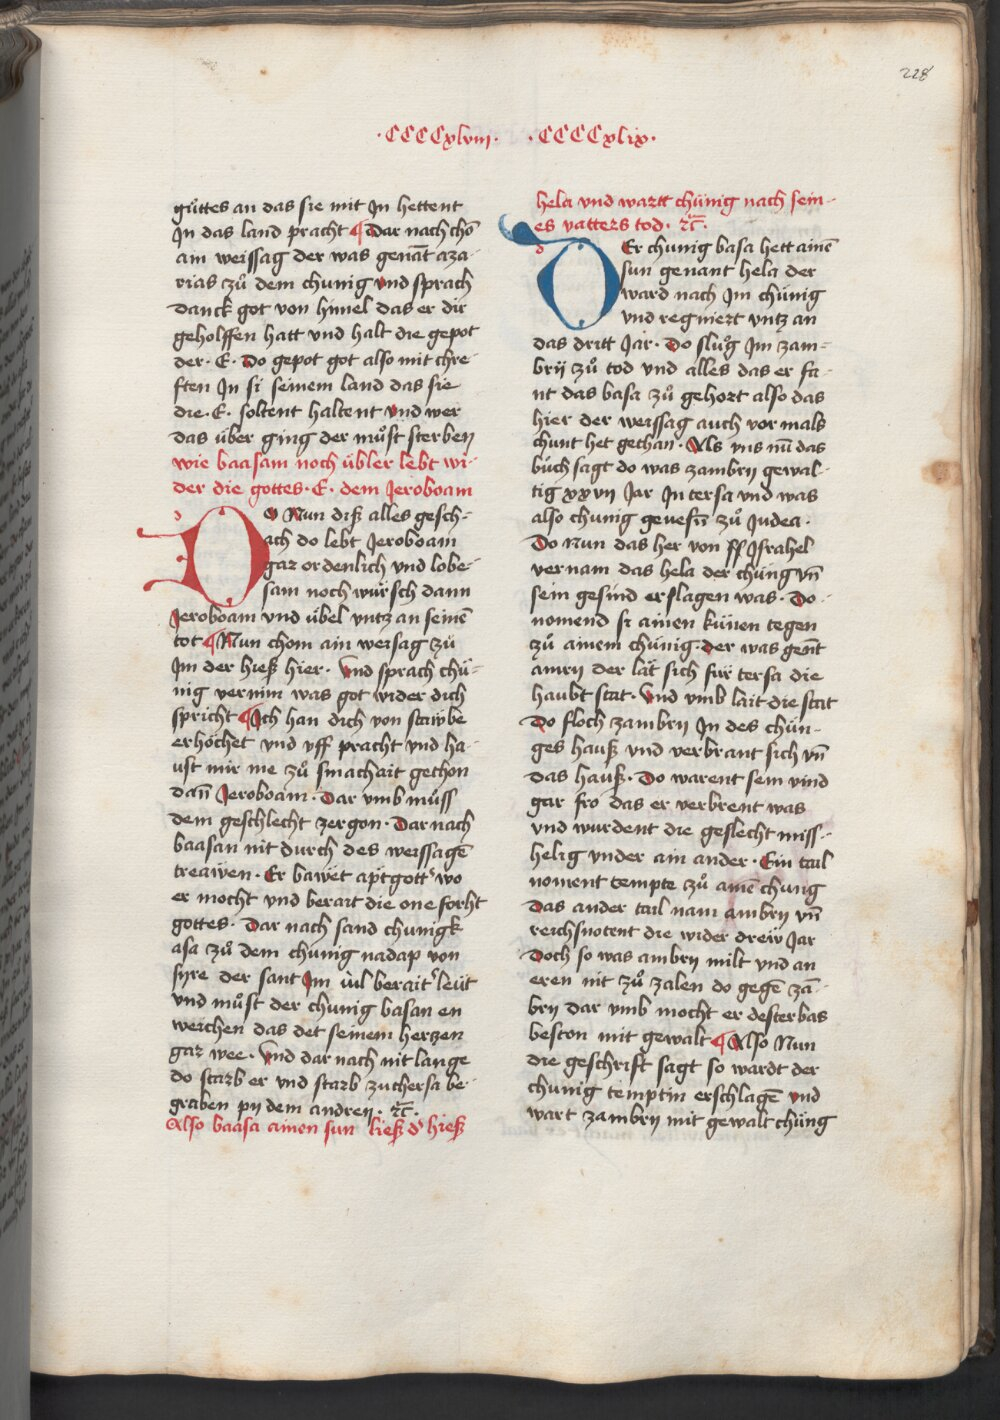 228
·CCCCxlviii· ·CCCCxlix·
gůttes an das sie mit Jn hettent
Jn das land pracht ¶ Dar nach chō
ain weissag der was genāt aza-
rias zů dem chunig vnd sprach
danck got von himel das er dir
geholffen hatt vnd halt die gepot
der · E · Do gepot got also mit chre-
ften Jn si seinem land das sie
die · E · soltent haltent vnd wer
das über ging der můst sterben
wie baasam noch übler lebt wi-
der die gottes · E · dem Jeroboam
DO Nun diß alles gesch-
ach do lebt Jeroboam
gar ordenlich vnd lobe-
sam noch würsch dann
Jeroboam vnd übel vntz an seinē
tot ¶ Nun chom ain weisag zů
Jm der hieß hier · Vnd sprach chü-
nig vernim was got wider dich
spricht ¶ Jch han dich von staübe
erhöchet vnd vff pracht vnd ha-
ust mir me zů smachait gethon
dañ Jeroboam · Dar vmb můss
dem geschlecht zergon · Dar nach
baasan nit durch des weissagē
treaiwen · Er bawet aptgott' wo
er mocht vnd berait die one forht
gottes · Dar nach sand chunigk
asa zů dem chunig nadap von
syre der sant Jm uil berait' leüt
vnd můst der chunig basan en
weichen das det seinem hertzen
gar wee · Vnd dar nach nit lange
do starb er vnd starb zuchersa be-
graben py dem andren · ꝛc̄ ·
Also baasa ainen sun ließ d' hieß
hela vnd wartt chünig nach sein-
es vatters tod · ꝛc̄ ·
DEr chunig basa hett ainē
sun genant hela der
ward nach Jm chünig
vnd regniert vntz an
das dritt Jar · Do slůg Jm zam-
brÿ zů tod vnd alles das er fa-
nt das basa zů gehort also das
hier der weissag auch vor mals
chunt het gethan · Als vns nū das
bůch sagt do was zambrÿ gewal-
tig xxvii Jar Jn tersa vnd was
also chunig gevesñ zů Judea ·
Do Nun das her von ff Jsrahel
vernam das hela der chüng vñ
sein gesind erslagen was · Do
nomend si ainen künen tegen
zů ainem chünig · der was gent
amrÿ der lät sich für tersa die
haubt stat · Vnd vmb lait die stat
Do floch zambrÿ Jn des chün-
ges hauß vnd verbrant sich vñ
das hauß · Do warent sein vind
gar fro das er verbrent was
vnd wurdent die geslecht miss-
helig vnder ain ander · Ein tail
noment tempte zů ainē chung
Das ander tail nam ambrÿ vñ
reichsnotent die wider dreiv Jar
Doch so was ambrÿ milt vnd an
eren nit zů zalen do gegē zā-
brÿ dar vmb mocht er dester bas
beston mit gewalt ¶ Also Nun
die geschrift sagt so wardt der
chunig temptin erschlagē vnd
wart zambrÿ mit gewalt chüng